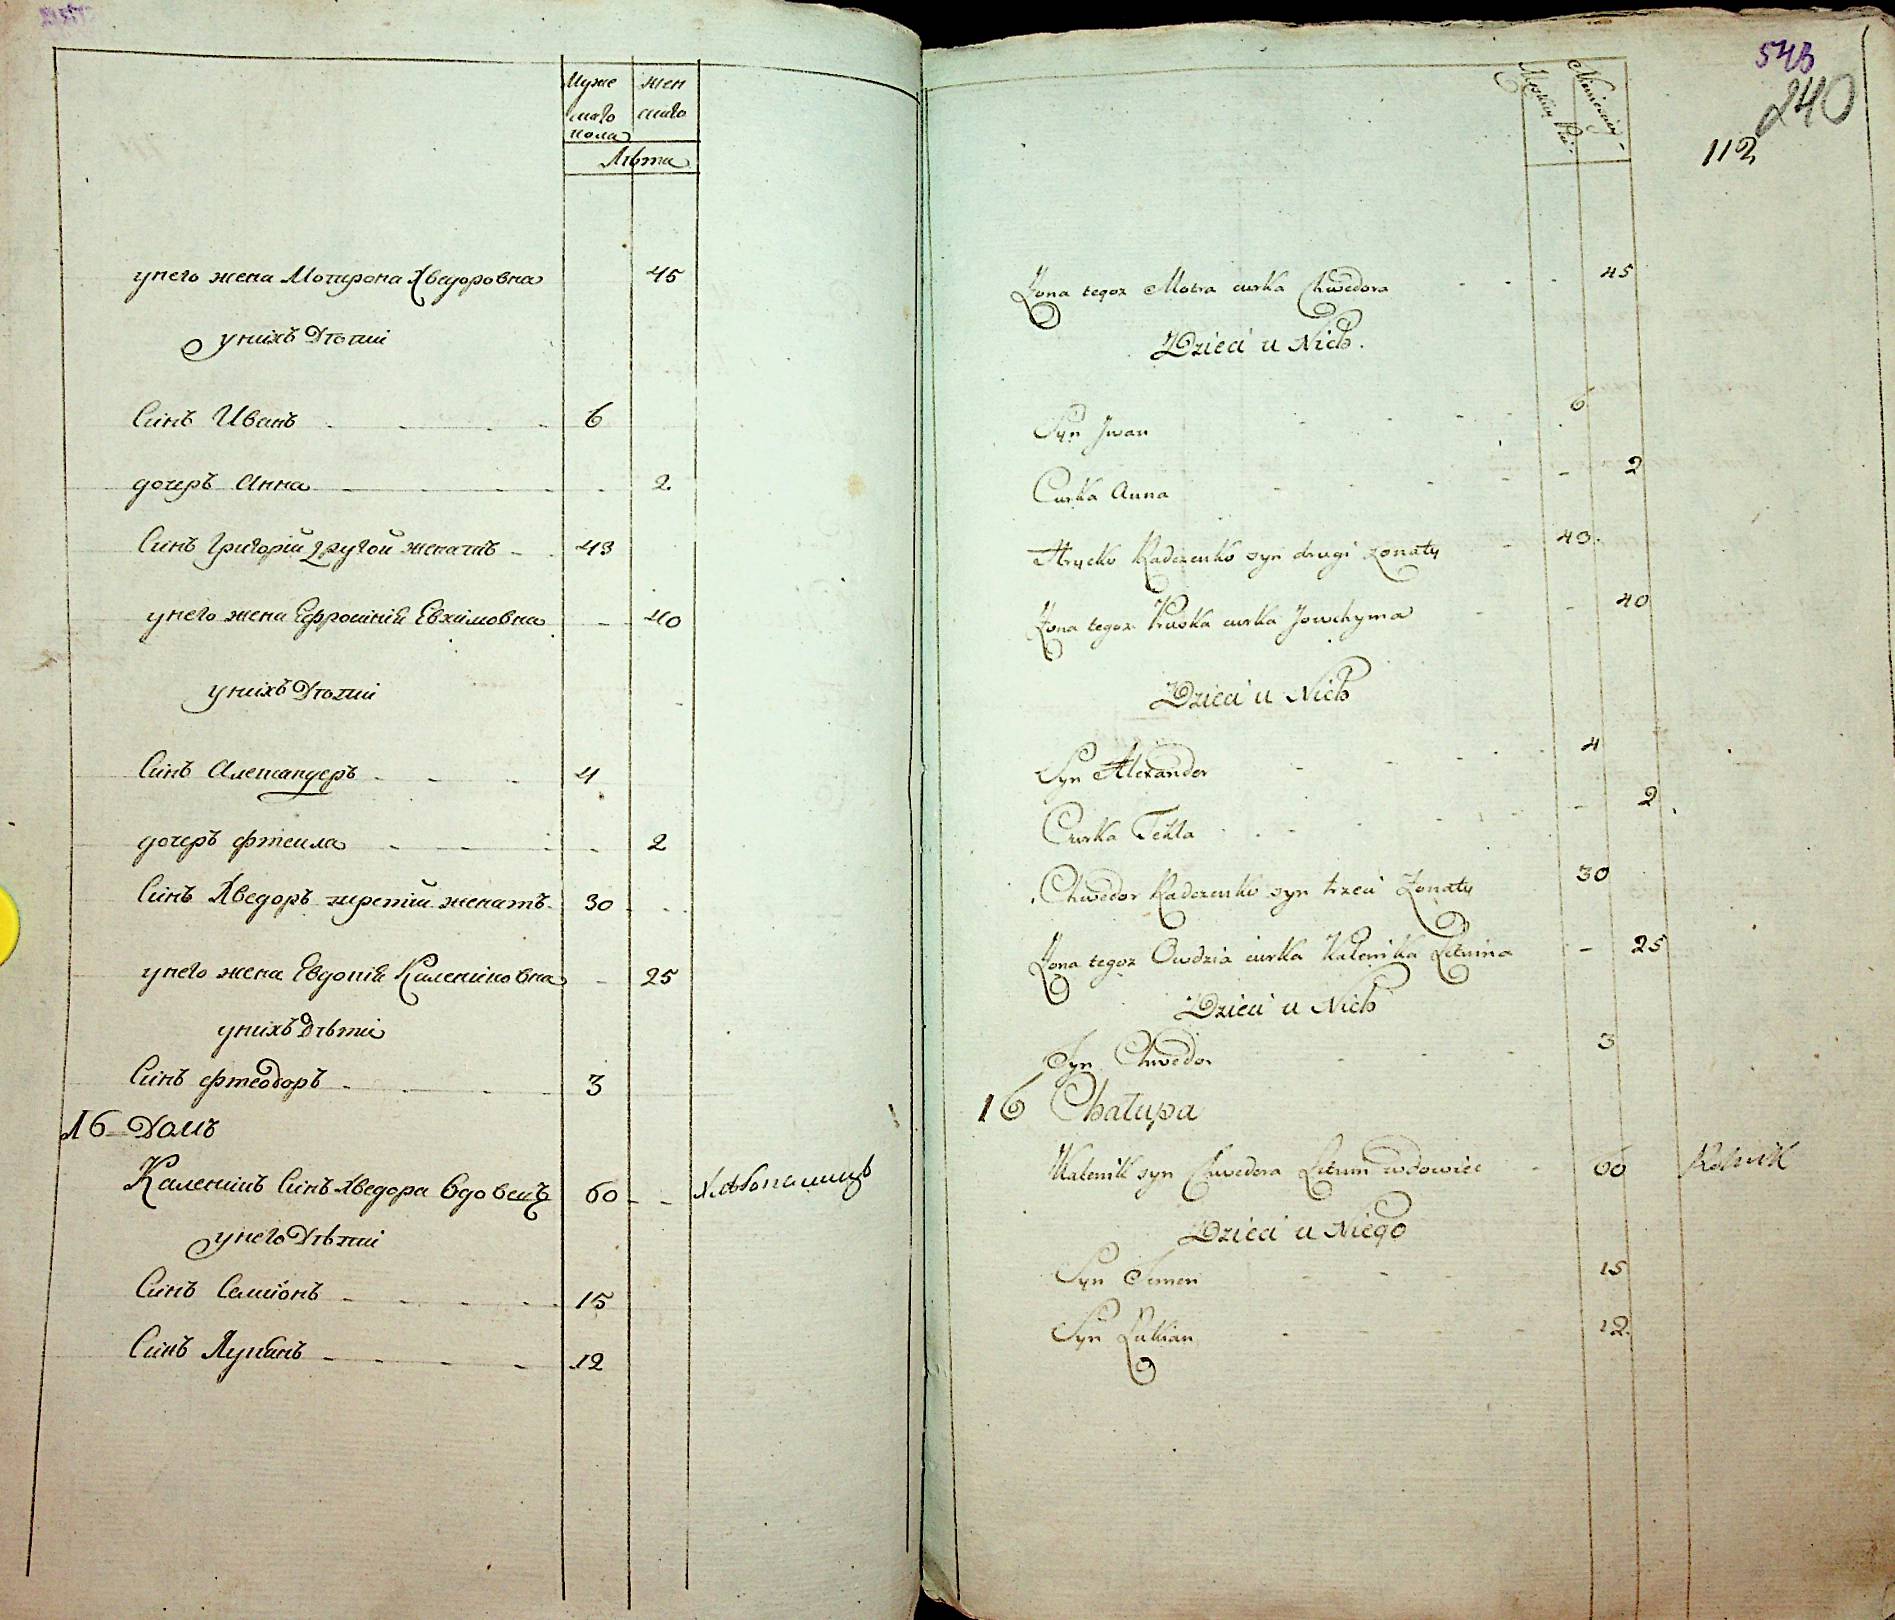 Муже
скаго
пола
жен
скаго
Лѣта
унего жена Мотрона Хведоровна 45
унихъ Дѣти
Синъ Иванъ 6
дочеръ Анна 2
Синъ Григорій другой женатъ 43
унего жена Ефросинія Евхимовна 40
унихъ Дѣти
Синъ Александеръ 4
дочеръ Фтекла 2
Синъ Хведоръ третій женатъ 30
унего жена Евдокія Калениковна 25
унихъ Дѣти
Синъ Фтеодоръ 3
16 Домъ
Каленикъ Синъ Хведора Вдовецъ 60 Хлѣбопашецъ
унего Дѣти
Синъ Семіонъ 15
Синъ Лукянъ 12
543
240
112
Żona tegoż Motra curka Chwedora 45
Dzieci u Nich.
Syn Jwan 6
Curka Anna 2
Hrycko Radczenko syn drugi żonaty 43.
Żona tegoż Pruska curka Jowchyma 40
Dzieci u Nich
Syn Alexander 4
Curka Tekla 2
Chwedor Radczenko syn trzeci Żonaty 30
Żona tegoż Owdzia curka Kalenika Litwina 25
Dzieci u Nich
Syn Chwedor 3
16 Chałupa
Kalenik syn Chwedora Litwin wdowiec 60 Rolnik
Dzieci u Niego
Syn Simon 15
Syn Łukian 12.